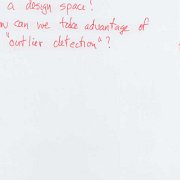 a design space?
ow can we take advantage of
"outlier detection"?